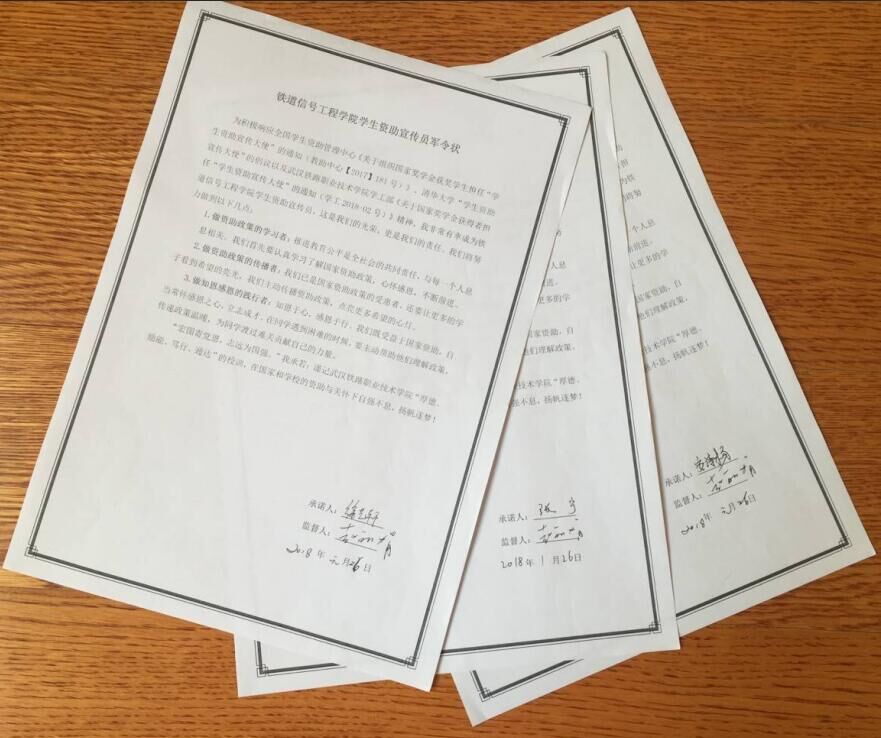 铁道信号工程学院学生资助宣传员军令状
为积极响应全国学生资助管理中心《关于组织国家奖学金获奖学生担任“学
生资助宣传大使”的通知（教助中心【2017】181号）》、清华大学“学生资助
宣传大使”的倡议以及武汉铁路职业技术学院学工部《关于国家奖学金获得者担
任“学生资助宣传大使”的通知（学工2018·02号）》精神，我非常有幸成为铁
道信号工程学院学生资助宣传员，这是我们的光荣，更是我们的责任。我们将努
力做到以下几点：
1.做资助政策的学习者：推进教育公平是全社会的共同责任，与每一个人息
息相关。我们首先要认真学习了解国家资助政策，心怀感恩，不断前进。
2.做资助政策的传播者：我们已是国家资助政策的受惠者，还要让更多的学
子看到希望的亮光，我们主动传播资助政策，点亮更多希望的心灯。
3.做知恩感恩的践行者：知恩于心，感恩于行。我们既受益于国家资助，自
当常怀感恩之心，立志成才。在同学遇到困难的时候，要主动帮助他们理解政策，
传递政策温暖，为同学渡过难关贡献自己的力量。
“宏图寄党恩，志远为国强。”我承若：谨记武汉铁路职业技术学院“厚德、
励能、笃行、通达”的校训，在国家和学校的资助与关怀下自强不息，扬帆逐梦！
承诺人：
监督人：
2018年元月26日
生担
资助
者担
为铁
将努
一个人息
断前进。
让更多的学
国家资助，自
他们理解政策，
技术学院“厚德、
强不息，扬帆逐梦！
承诺人：张宁
监督人：
2018年1月26日
人息
前进。
更多的学
国家资助，自
他们理解政策，
技术学院“厚德、
强不息，扬帆逐梦！
承诺人：
监督人：
2018年元月26日